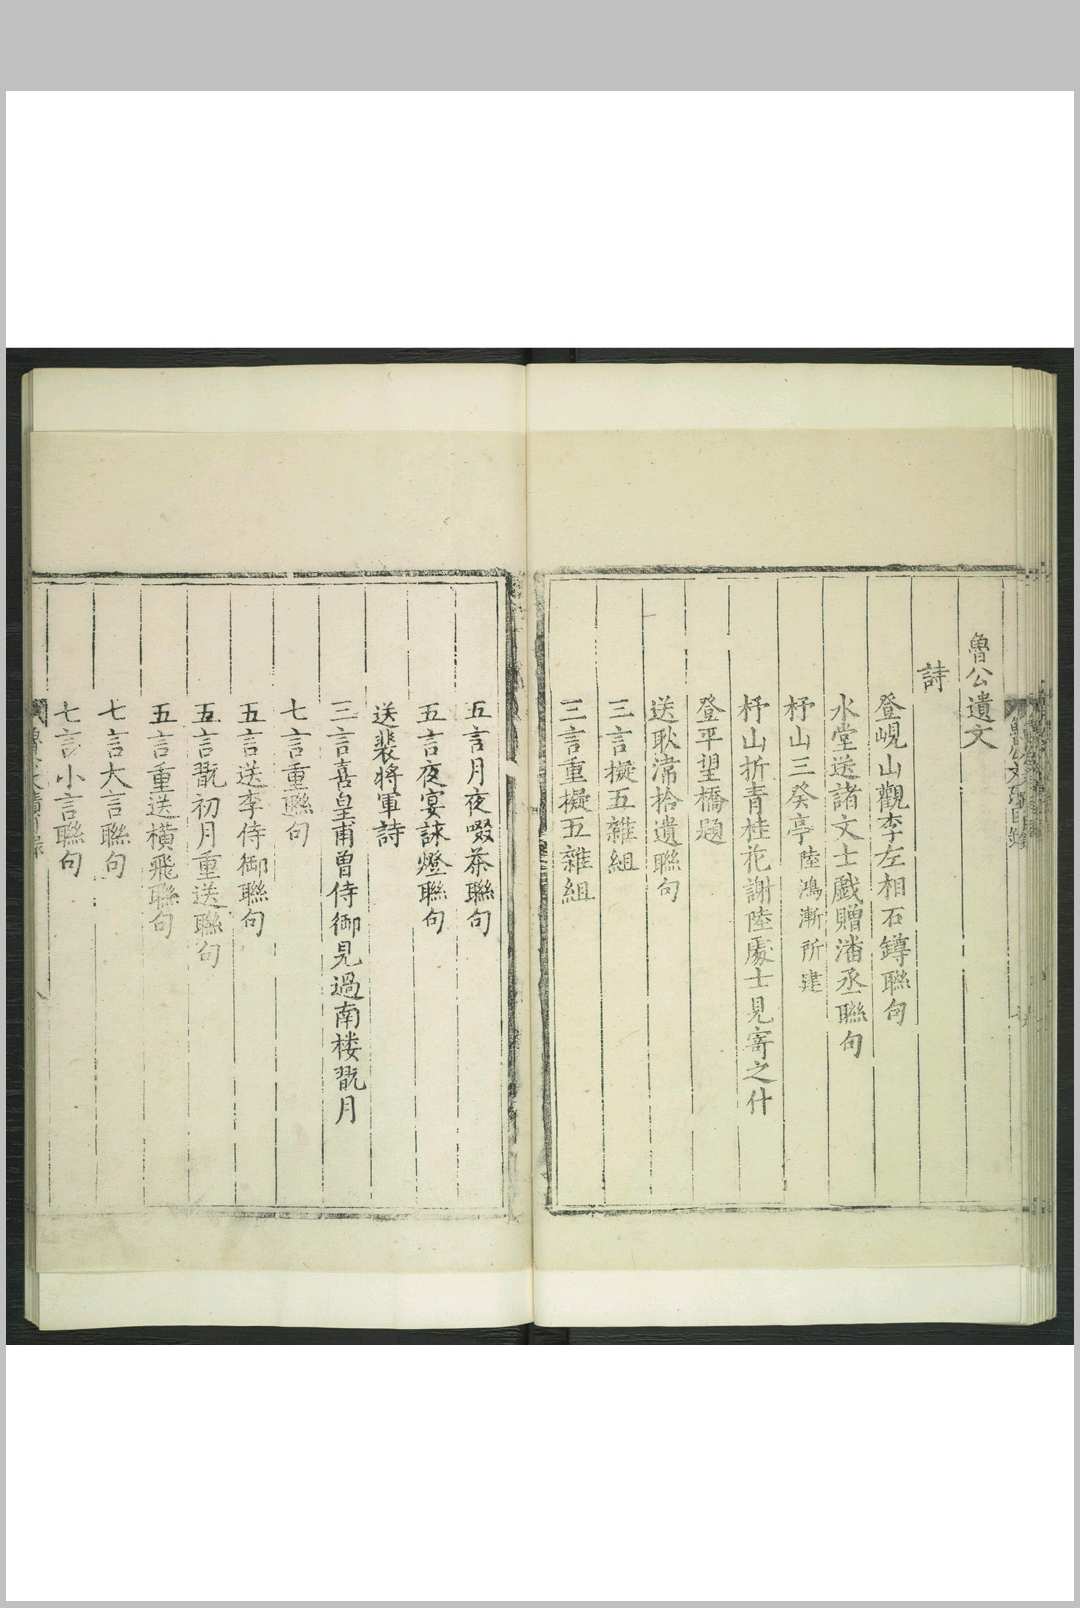 魯公遺文
詩
登峴山觀李左相石罇聯句
水堂送諸文士戲贈潘丞聯句
杼山三癸亭陸鴻漸所建
杼山折青桂花謝陸處士見寄之什
登平望橋題
送耿湋拾遺聯句
三言擬五雜組
三言重擬五雜組
五言月夜啜茶聯句
五言夜宴詠燈聯句
送裴將軍詩
三言喜皇甫曾侍御見過南楼翫月
七言重聯句
五言送李侍御聯句
五言翫初月重送聯句
五言重送橫飛聯句
七言大言聯句
七言小言聯句